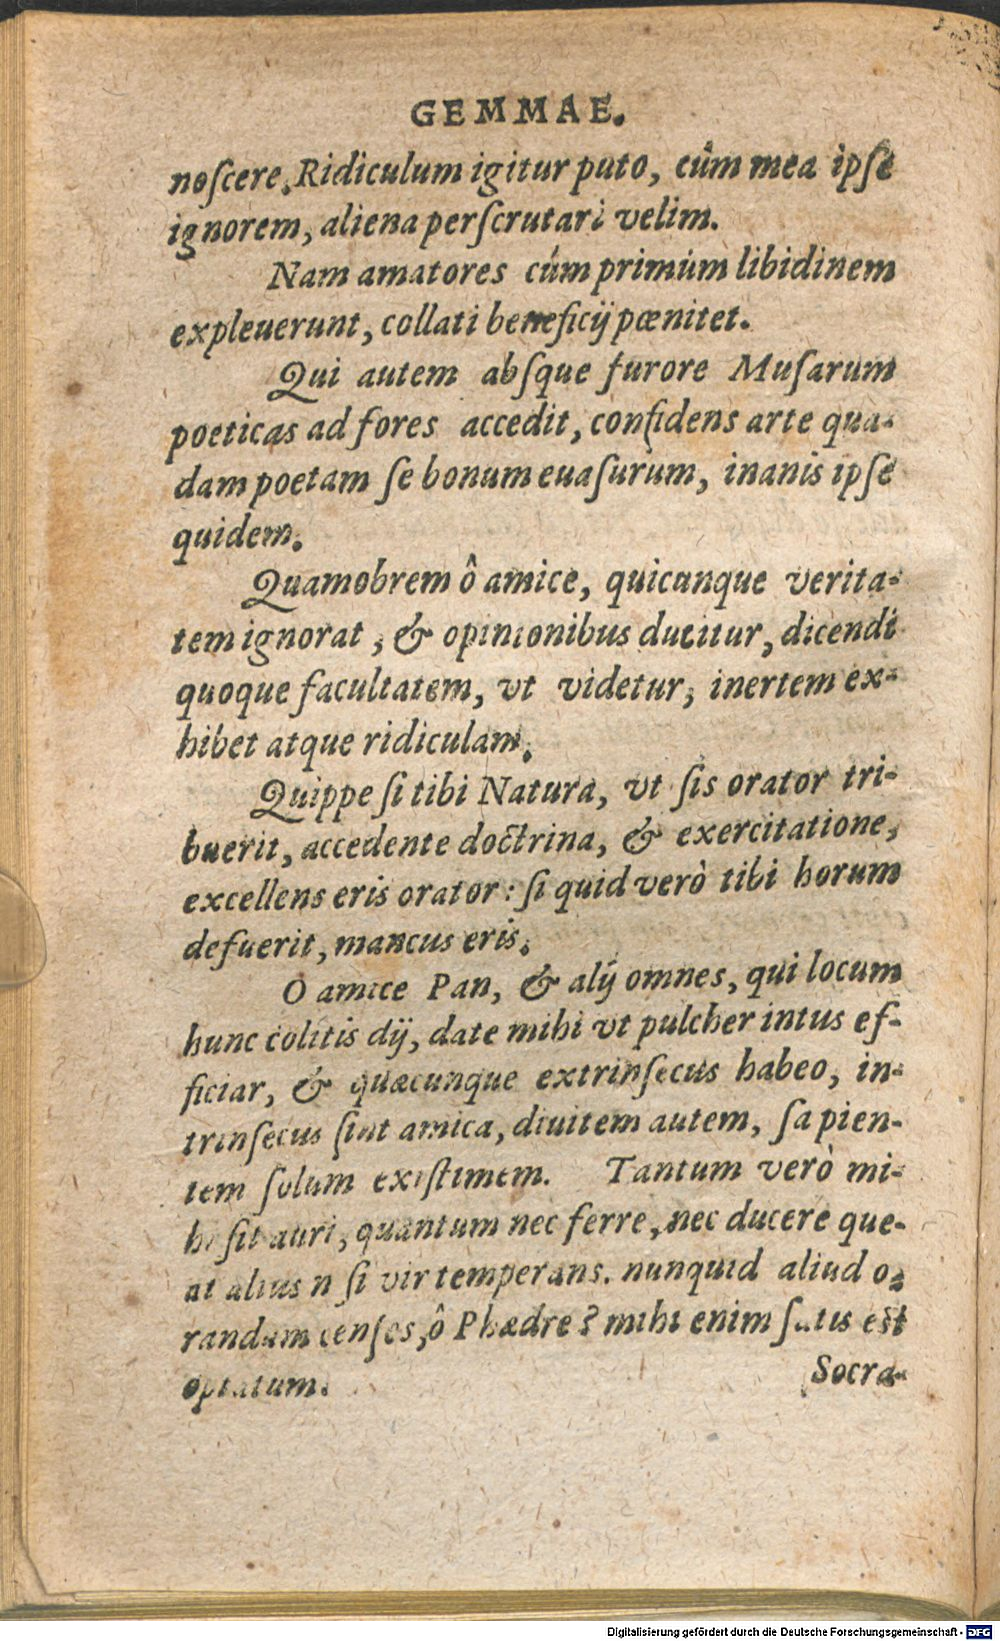 GEMMAE.
noſcere. Ridiculum igitur puto, cûm mea ipſe
ignorem, aliena perſcrutari velim.
Nam amatores cúm primùm libidinem
expleuerunt, collati beneficij pœnitet.
Qui autem abſque furore Muſarum
poeticas ad fores accedit, confidens arte qua-
dam poetam ſe bonum euaſurum, inanis ipſe
quidem.
Quamobrem ô amice, quicunque verita-
tem ignorat, & opinionibus ducitur, dicendi
quoque facultatem, vt videtur, inertem ex-
hibet atque ridiculam.
Quippe ſi tibi Natura, vt ſis orator tri-
buerit, accedente doctrina, & exercitatione,
excellens eris orator: ſi quid verò tibi horum
defuerit, mancus eris.
O amice Pan, & alij omnes, qui locum
hunc colitis dij, date mihi vt pulcher intus ef-
ficiar, & quæcunque extrinſecus habeo, in-
trinſecus ſint amica, diuitem autem, ſapien-
tem ſolum exiſtimem. Tantum verò mi-
hi ſit auri, quantum nec ferre, nec ducere que-
at alius n ſi vir temperans. nunquid aliud o-
randum cenſes, ô Phædre? mihi enim ſatis eſt
optatum.
Socra-
Digitalisierung gefördert durch die Deutsche Forschungsgemeinschaft - DFG